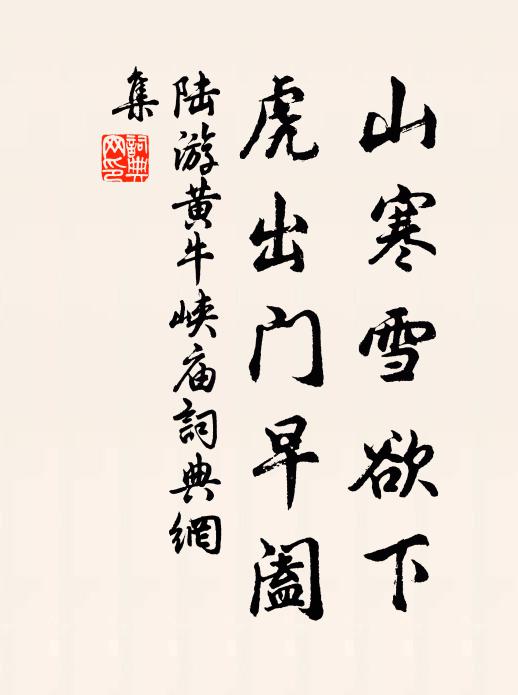 山寒雪欲下
虎出门早阖
陆游黄牛峡庙詞典網
集
詞典
网印